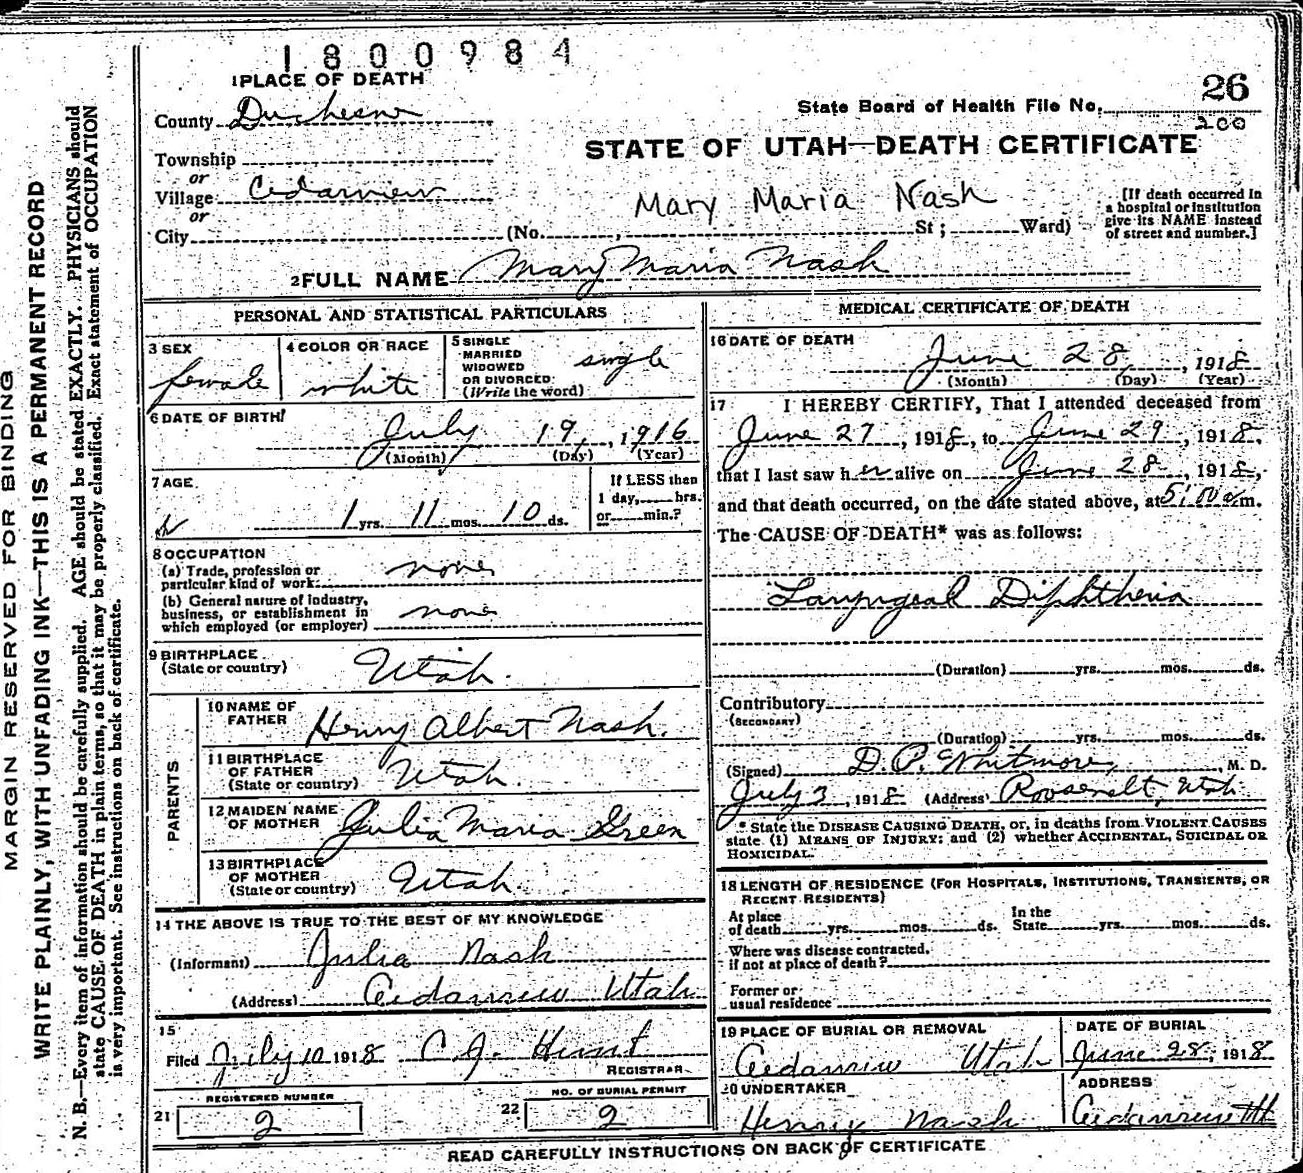 1800984
1 PLACE OF DEATH
26
County Duchesne
State Board of Health File No.
200
Township
STATE OF UTAH—DEATH CERTIFICATE
or
Village Cedarview
Mary Maria Nash
[If death occurred in a hospital or institution give its NAME instead of street and number.]
or
City (No. , St; Ward)
2 FULL NAME Mary Maria Nash
PERSONAL AND STATISTICAL PARTICULARS
3 SEX female
4 COLOR OR RACE white
5 SINGLE MARRIED WIDOWED OR DIVORCED (Write the word) single
6 DATE OF BIRTH July 19, 1916
(Month) (Day) (Year)
7 AGE
1 yrs. 11 mos. 10 ds.
If LESS than 1 day, hrs. or min.?
8 OCCUPATION
(a) Trade, profession or particular kind of work none
(b) General nature of industry, business, or establishment in which employed (or employer) none
9 BIRTHPLACE (State or country) Utah.
PARENTS
10 NAME OF FATHER Henry Albert Nash.
11 BIRTHPLACE OF FATHER (State or country) Utah.
12 MAIDEN NAME OF MOTHER Julia Maria Green
13 BIRTHPLACE OF MOTHER (State or country) Utah.
14 THE ABOVE IS TRUE TO THE BEST OF MY KNOWLEDGE
(Informant) Julia Nash
(Address) Cedarview Utah
15
Filed July 10 1918 C. J. Hunt
REGISTRAR
REGISTERED NUMBER
21 2
NO. OF BURIAL PERMIT
22 2
MEDICAL CERTIFICATE OF DEATH
16 DATE OF DEATH
June 28, 1918
(Month) (Day) (Year)
17 I HEREBY CERTIFY, That I attended deceased from
June 27, 1918, to June 29, 1918,
that I last saw her alive on June 28, 1918,
and that death occurred, on the date stated above, at 5:00 a m.
The CAUSE OF DEATH* was as follows:
Laryngeal Diphtheria
(Duration) yrs. mos. ds.
Contributory
(SECONDARY)
(Duration) yrs. mos. ds.
(Signed) D. P. Whitmore, M. D.
July 3, 1918 (Address) Roosevelt, Utah
* State the DISEASE CAUSING DEATH, or, in deaths from VIOLENT CAUSES
state (1) MEANS OF INJURY; and (2) whether ACCIDENTAL, SUICIDAL OR
HOMICIDAL.
18 LENGTH OF RESIDENCE (FOR HOSPITALS, INSTITUTIONS, TRANSIENTS, OR
RECENT RESIDENTS)
At place of death yrs. mos. ds. In the State yrs. mos. ds.
Where was disease contracted, if not at place of death?
Former or usual residence
19 PLACE OF BURIAL OR REMOVAL
Cedarview Utah
DATE OF BURIAL
June 28, 1918
20 UNDERTAKER
Henry Nash
ADDRESS
Cedarview Ut
READ CAREFULLY INSTRUCTIONS ON BACK OF CERTIFICATE
MARGIN RESERVED FOR BINDING
WRITE PLAINLY, WITH UNFADING INK—THIS IS A PERMANENT RECORD
N. B.—Every item of information should be carefully supplied. AGE should be stated EXACTLY. PHYSICIANS should
state CAUSE OF DEATH in plain terms, so that it may be properly classified. Exact statement of OCCUPATION
is very important. See instructions on back of certificate.